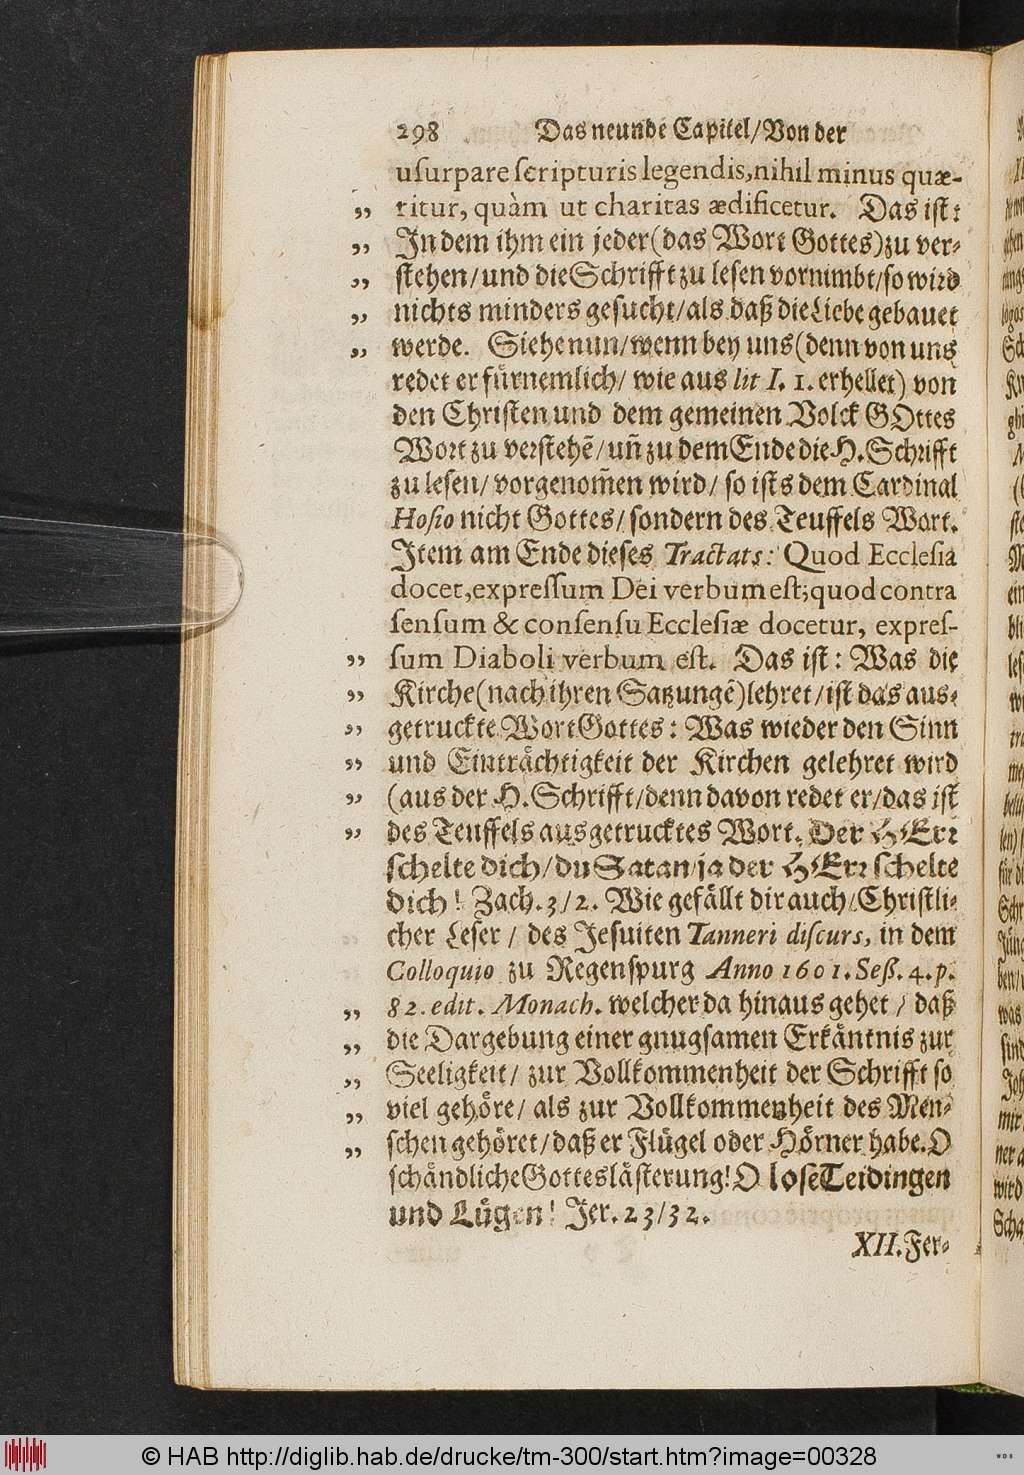 298 Das neunde Capitel/Von der
usurpare scripturis legendis, nihil minus quæ-
„ ritur, quàm ut charitas ædificetur. Das ist:
„ In dem ihm ein jeder (das Wort Gottes) zu ver-
„ stehen/ und die Schrifft zu lesen vornimbt/ so wird
„ nichts minders gesucht/ als daß die Liebe gebauet
„ werde. Siehe nun/ wenn bey uns (denn von uns
redet er fürnemlich/ wie aus lit I. 1. erhellet) von
den Christen und dem gemeinen Volck GOttes
Wort zu verstehē/ uñ zu dem Ende die H. Schrifft
zu lesen/ vorgenom̃en wird/ so ists dem Cardinal
Hosio nicht Gottes/ sondern des Teuffels Wort.
Item am Ende dieses Tractats: Quod Ecclesia
docet, expressum Dei verbum est; quod contra
sensum & consensu Ecclesiæ docetur, expres-
„ sum Diaboli verbum est. Das ist: Was die
„ Kirche (nach ihren Satzungē) lehret/ ist das aus-
„ getruckte Wort Gottes: Was wieder den Sinn
„ und Einträchtigkeit der Kirchen gelehret wird
„ (aus der H. Schrifft/ denn davon redet er/ das ist
„ des Teuffels ausgetrucktes Wort. Der HErr
schelte dich/ du Satan/ ja der HErr schelte
dich! Zach. 3/2. Wie gefällt dir auch/ Christli-
cher Leser/ des Jesuiten Tanneri discurs, in dem
Colloquio zu Regenspurg Anno 1601. Seß. 4. p.
„ 82. edit. Monach. welcher da hinaus gehet/ daß
„ die Dargebung einer gnugsamen Erkäntnis zur
„ Seeligkeit/ zur Vollkommenheit der Schrifft so
„ viel gehöre/ als zur Vollkommenheit des Men-
„ schen gehöret/ daß er Flügel oder Hörner habe. O
schändliche Gotteslästerung! O lose Teidingen
und Lügen! Jer. 23/32.
XII. Fer-
© HAB http://diglib.hab.de/drucke/tm-300/start.htm?image=00328